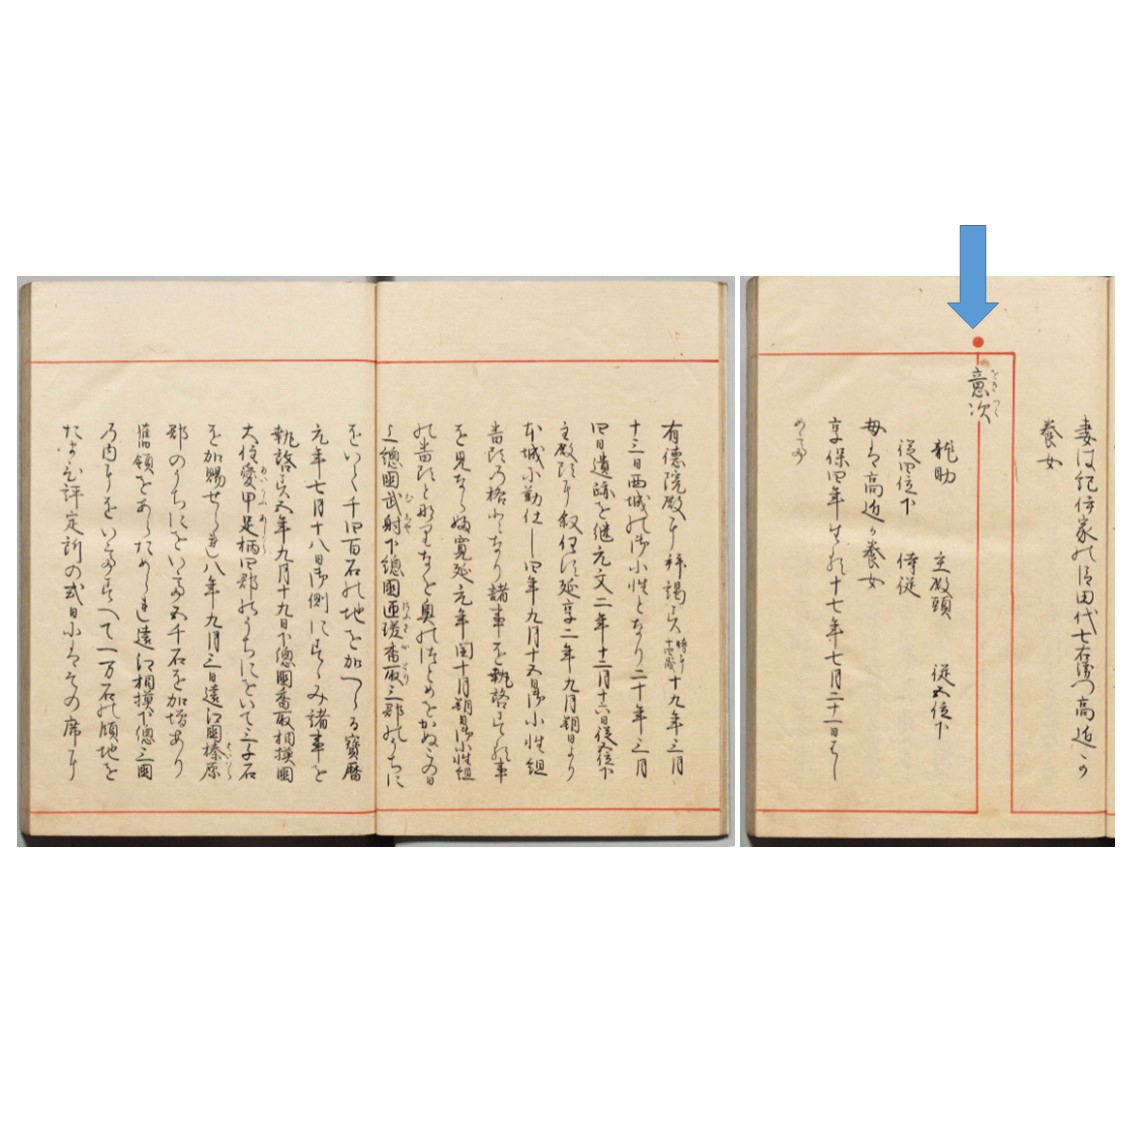 妻は紀伊家の臣田代七右衛門高近が
養女
意次
をきつぐ
龍助 主殿頭 従五位下
従四位下 侍従
母は高近が養女
享保四年生れ十七年七月二十一日はじ
めて
有徳院殿に拝謁す時に十四歳十九年三月
十三日西城の御小性となり二十年三月
四日遺跡を継元文二年十二月十六日従五位下
主殿頭に叙任す延享二年九月朔日より
本城に勤仕し四年九月十五日御小性組
番頭の格となり諸事を執啓するの事
を見ならふ寛延元年閏十月朔日御小性組
の番頭となりなをと奥のつとめをかぬこの日
上總國武射下總國匝瑳香取三郡のうちに
むさ
さふさ かとり
をいて千四百石の地を加へらる寶暦
元年七月十八日御側にすゝみ諸事を
執啓す五年九月十九日下總國香取相摸國
大住愛甲足柄四郡のうちにをいて三千石
あいかう あしから
を加賜せられ八年九月三日遠江國榛原
はいばら
郡のうちにをいて五千石を加増あり
舊領をあらためられ遠江相摸下總三國
の内にをいてすへて一万石の領地を
たまひ評定所の式日にはその席に